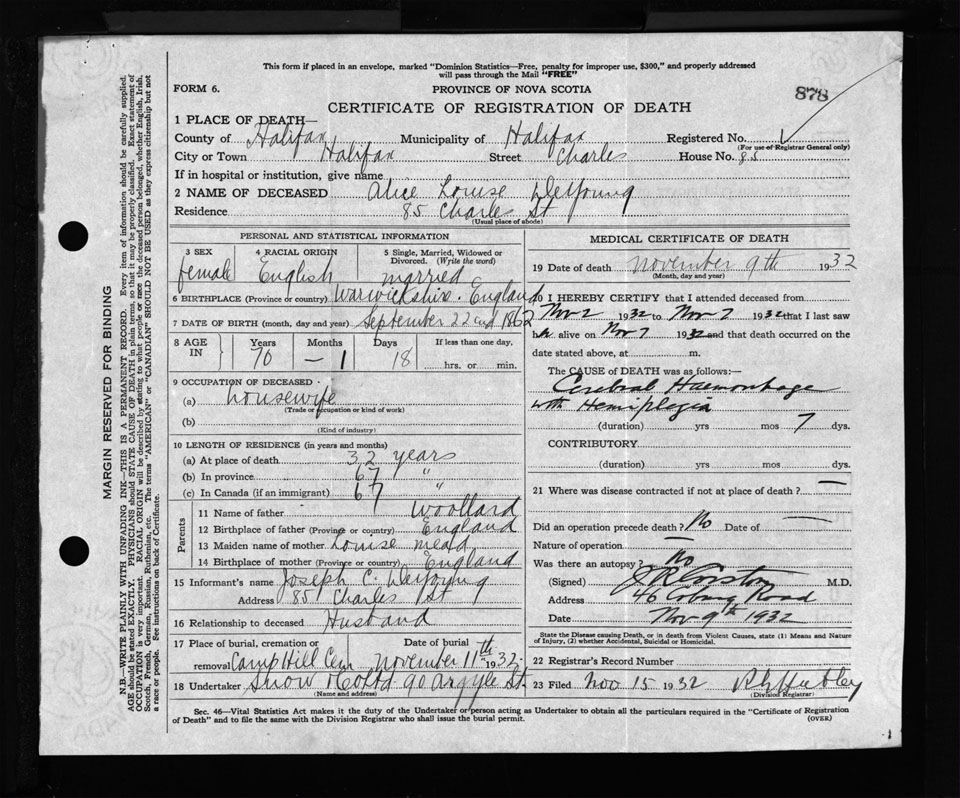 This form if placed in an envelope, marked "Dominion Statistics—Free, penalty for improper use, $300," and properly addressed
will pass through the Mail "FREE"
FORM 6.
PROVINCE OF NOVA SCOTIA
878
CERTIFICATE OF REGISTRATION OF DEATH
1 PLACE OF DEATH—
County of Halifax Municipality of Halifax Registered No.
(For use of Registrar General only)
City or Town Halifax Street Charles House No. 85
If in hospital or institution, give name
2 NAME OF DECEASED Alice Louise DeYoung
Residence 85 Charles St
(Usual place of abode)
PERSONAL AND STATISTICAL INFORMATION
3 SEX 4 RACIAL ORIGIN 5 Single, Married, Widowed or
Divorced. (Write the word)
female English married
6 BIRTHPLACE (Province or country) Warwickshire. England
7 DATE OF BIRTH (month, day and year) September 22nd 1862
8 AGE IN Years Months Days If less than one day,
70 — 1 18 hrs. or min.
9 OCCUPATION OF DECEASED
(a) housewife
(Trade or occupation or kind of work)
(b)
(Kind of industry)
10 LENGTH OF RESIDENCE (in years and months)
(a) At place of death 32 years
(b) In province 67 "
(c) In Canada (if an immigrant) 67 "
Parents
11 Name of father Woollard
12 Birthplace of father (Province or country) England
13 Maiden name of mother Louise Mead
14 Birthplace of mother (Province or country) England
15 Informant's name Joseph C. DeYoung
Address 85 Charles St
16 Relationship to deceased Husband
17 Place of burial, cremation or Date of burial
removal Camp Hill Cem November 11th 1932
18 Undertaker Snow & Co Ltd 90 Argyle St.
(Name and address)
MEDICAL CERTIFICATE OF DEATH
19 Date of death November 9th 1932
(Month, day and year)
20 I HEREBY CERTIFY that I attended deceased from
Nov 2 1932 to Nov 7 1932 that I last saw
h alive on Nov 7 1932 and that death occurred on the
date stated above, at m.
The CAUSE of DEATH was as follows:—
Cerebral Haemorrhage
with Hemiplegia
(duration) yrs mos 7 dys.
CONTRIBUTORY
(duration) yrs mos dys.
21 Where was disease contracted if not at place of death? —
Did an operation precede death? No Date of —
Nature of operation —
Was there an autopsy? No
(Signed) J R Corston M.D.
Address 46 Coburg Road
Date Nov 9th 1932
State the Disease causing Death, or in death from Violent Causes, state (1) Means and Nature
of Injury, (2) whether Accidental, Suicidal or Homicidal.
22 Registrar's Record Number
23 Filed Nov 15 1932
(Division Registrar)
Sec. 46—Vital Statistics Act makes it the duty of the Undertaker or person acting as Undertaker to obtain all the particulars required in the "Certificate of Registration
of Death" and to file the same with the Division Registrar who shall issue the burial permit. (OVER)
MARGIN RESERVED FOR BINDING
N.B.—WRITE PLAINLY WITH UNFADING INK—THIS IS A PERMANENT RECORD. Every item of information should be carefully supplied.
AGE should be stated EXACTLY. PHYSICIANS should STATE CAUSE OF DEATH in plain terms, so that it may be properly classified. Exact statement of
OCCUPATION is very important. RACIAL ORIGIN will be described by stating to what people or race the deceased person belonged, whether English, Irish,
Scotch, French, German, Russian, Ruthenian, etc. The terms "AMERICAN" or "CANADIAN" SHOULD NOT BE USED as they express citizenship but not
a race or people. See instructions on back of Certificate.